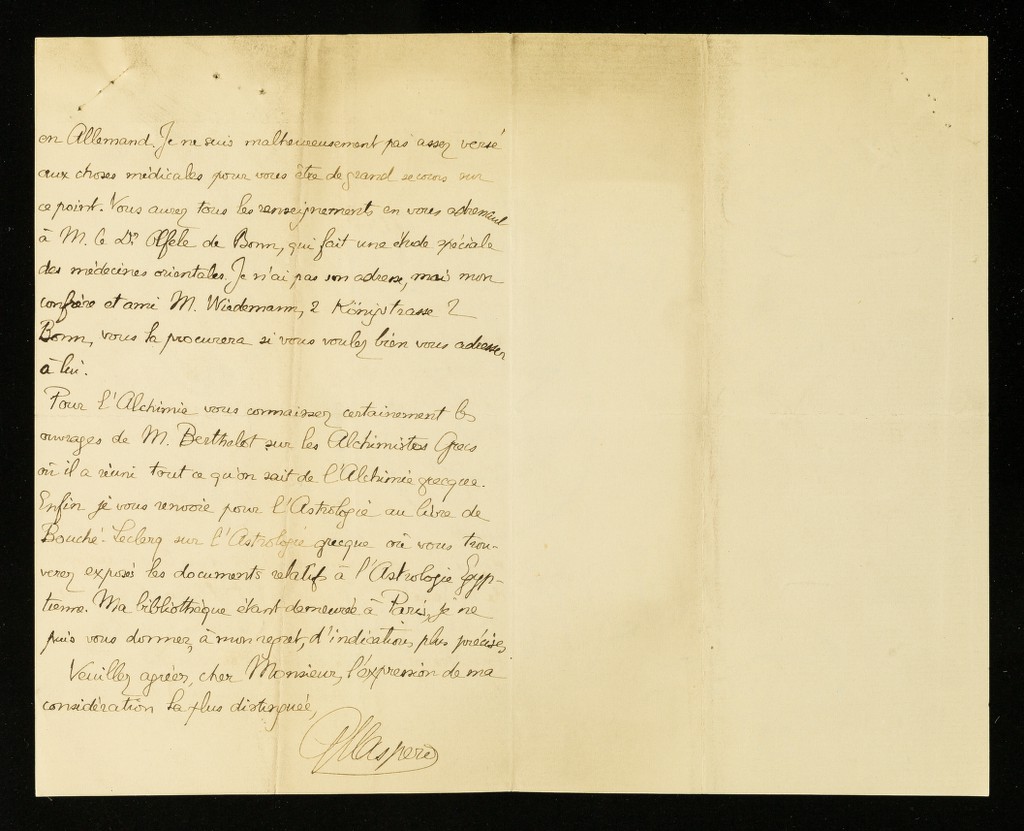 en Allemand. Je ne suis malheureusement pas assez versé
aux choses médicales pour vous être de grand secours sur
ce point. Vous aurez tous les renseignements en vous adressant
à M. le Dr Œfele de Bonn, qui fait une étude spéciale
des médecines orientales. Je n'ai pas son adresse, mais mon
confrère et ami M. Wiedemann, 2 Königstrasse 2
Bonn, vous la procurera si vous voulez bien vous adresser
à lui.
Pour l'Alchimie vous connaissez certainement les
ouvrages de M. Berthelot sur les Alchimistes Grecs
où il a réuni tout ce qu'on sait de l'Alchimie grecque.
Enfin je vous renvoie pour l'Astrologie au livre de
Bouché-Leclerq sur l'Astrologie grecque où vous trou-
verez exposés les documents relatifs à l'Astrologie Egyp-
tienne. Ma bibliothèque étant demeurée à Paris, je ne
puis vous donner, à mon regret, d'indications plus précises.
Veuillez agréer, cher Monsieur, l'expression de ma
considération la plus distinguée,
GMaspero